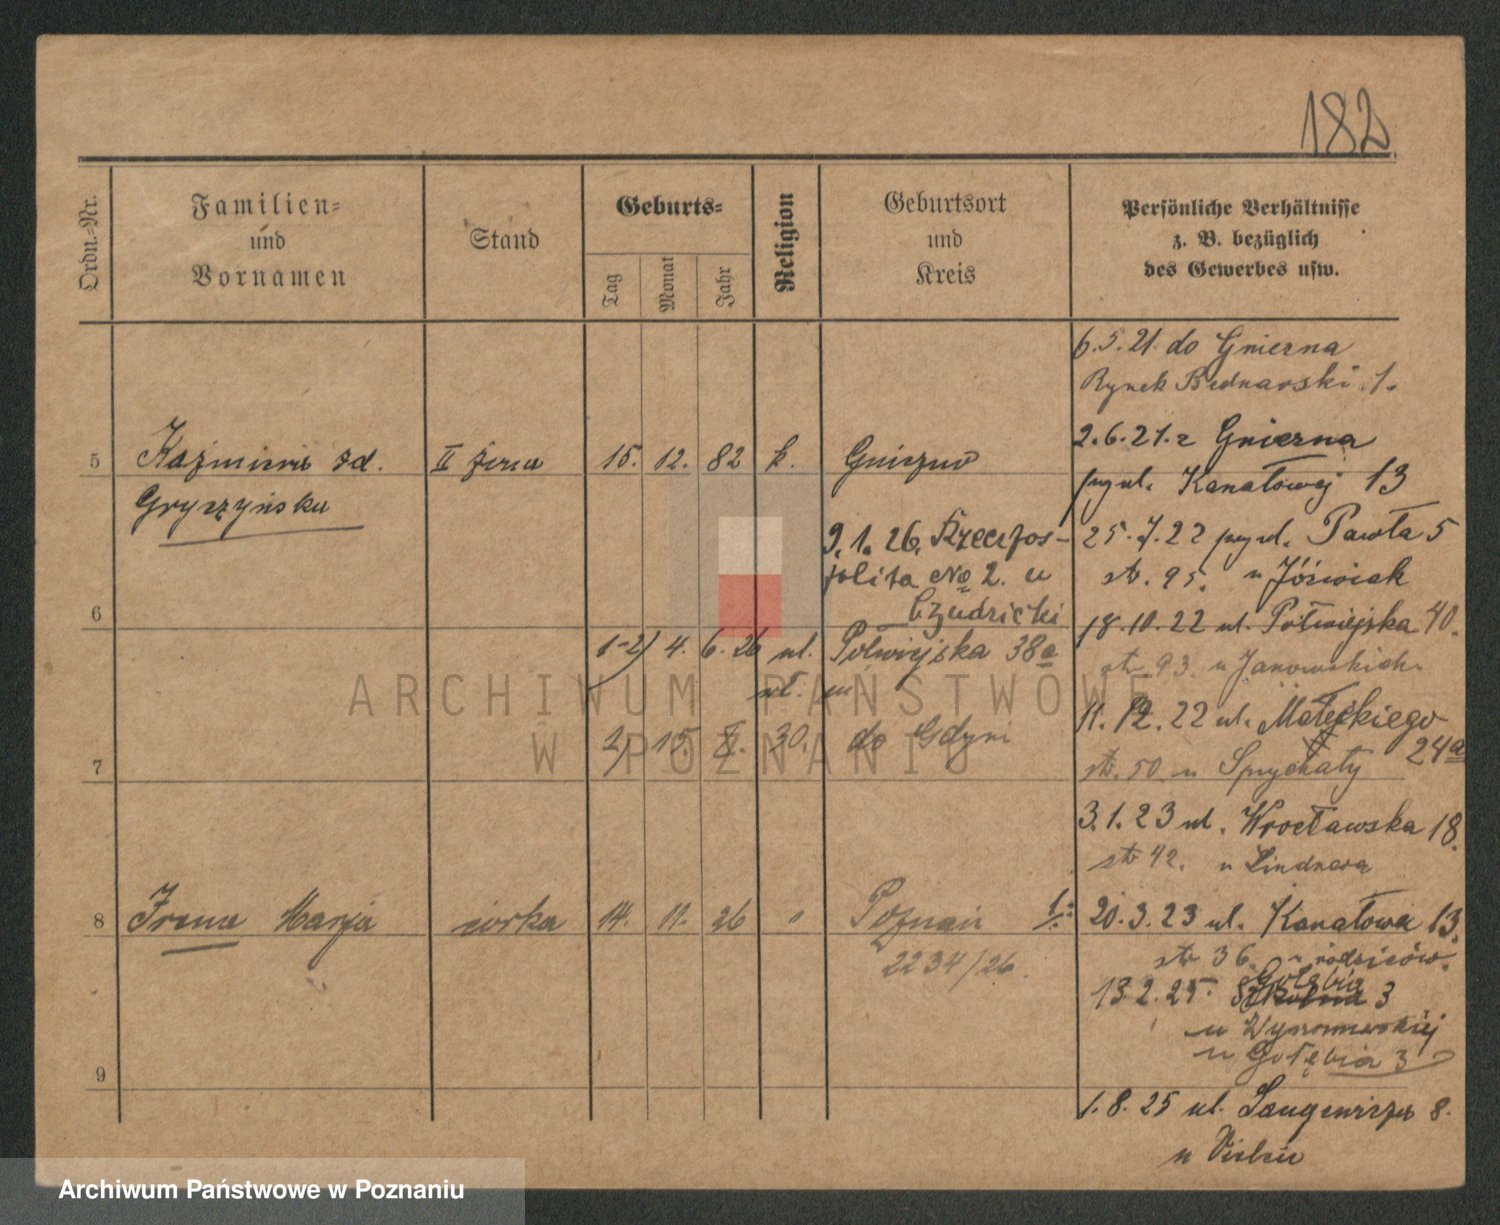 182
Ordn.-Nr.
Familien-
und
Vornamen
Stand
Geburts-
Tag
Monat
Jahr
Religion
Geburtsort
und
Kreis
Persönliche Verhältnisse
z. B. bezüglich
des Gewerbes usw.
6.5.21. do Gniezna
Rynek Bednarski 1.
2.6.21. z Gniezna
5 Kazmiera zd. II żona 15. 12. 82 k. Gniezno
Gryszyńska
Kanałowej 13
9.1.26. Rzeczpos-
polita No 2. u
Czudzicki
25.7.22 Pawła 5
str. 95. u Jóźwiak
6
18.10.22 ul. Półwiejska 40.
1-2) 4. 6. 26 ul. Półwiejska 38a
str 93 u Janowskich.
11.12.22 ul. Małeckiego
24a
2) 15. 30. do Gdyni
str. 50 u Spychały
7
3.1.23 ul. Wrocławska 18.
str 42. u Lindnera
8 Irena Marja córka 14. 11. 26 " Poznań 1:
2234/26.
20.3.23 ul. Kanałowa 13.
str 36 u rodziców.
Gołębia
13.2.25 Szkolna 3
u
u Gołębia 3
9
1.8.25 ul. Langiewicza 8.
u
ARCHIWUM PAŃSTWOWE
W POZNANIU
Archiwum Państwowe w Poznaniu